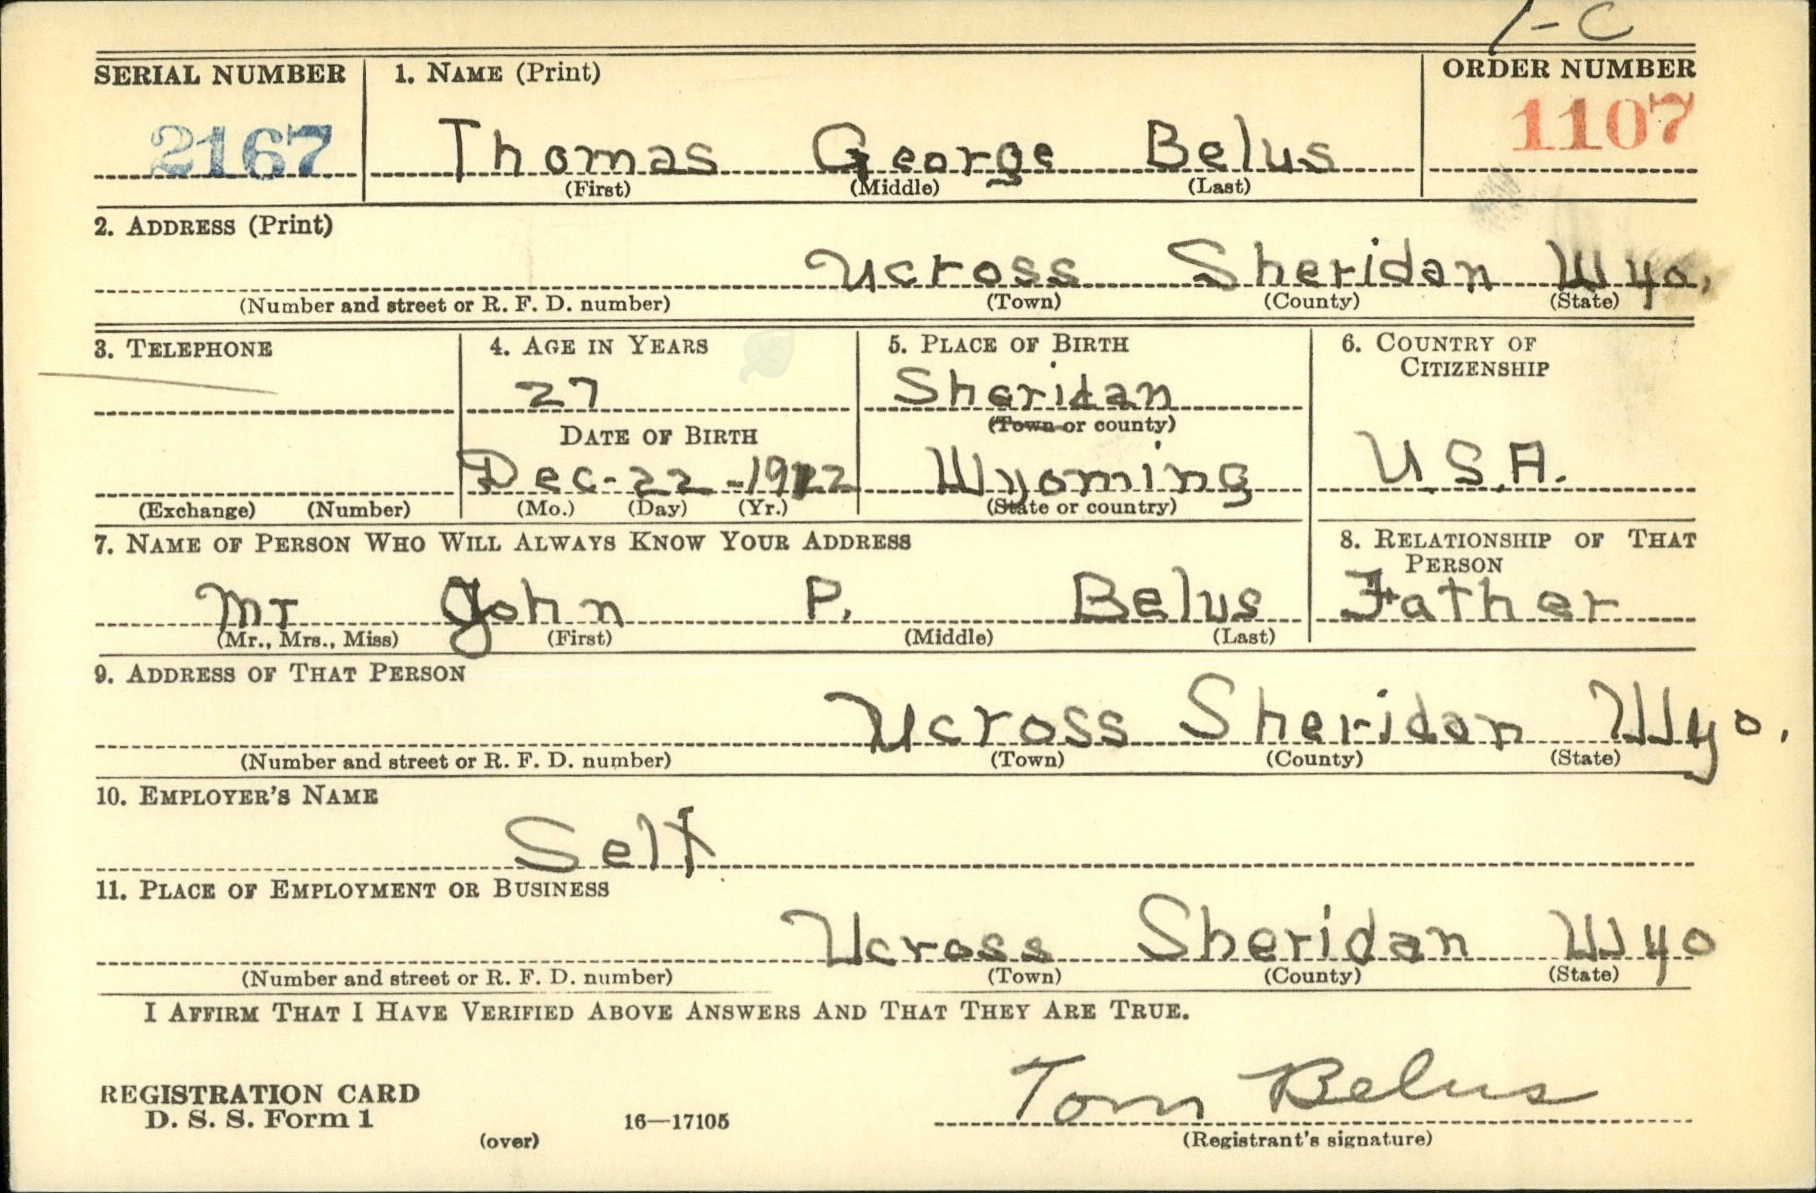 1-C
SERIAL NUMBER 1. NAME (Print) ORDER NUMBER
2167 Thomas George Belus 1107
(First) (Middle) (Last)
2. ADDRESS (Print)
Ucross Sheridan Wyo.
(Number and street or R. F. D. number) (Town) (County) (State)
3. TELEPHONE 4. AGE IN YEARS 5. PLACE OF BIRTH 6. COUNTRY OF CITIZENSHIP
27 Sheridan
(Town or county)
DATE OF BIRTH
Dec-22-1912 Wyoming U.S.A.
(Exchange) (Number) (Mo.) (Day) (Yr.) (State or country)
7. NAME OF PERSON WHO WILL ALWAYS KNOW YOUR ADDRESS 8. RELATIONSHIP OF THAT PERSON
Mr John P. Belus Father
(Mr., Mrs., Miss) (First) (Middle) (Last)
9. ADDRESS OF THAT PERSON
Ucross Sheridan Wyo.
(Number and street or R. F. D. number) (Town) (County) (State)
10. EMPLOYER'S NAME
Self
11. PLACE OF EMPLOYMENT OR BUSINESS
Ucross Sheridan Wyo
(Number and street or R. F. D. number) (Town) (County) (State)
I AFFIRM THAT I HAVE VERIFIED ABOVE ANSWERS AND THAT THEY ARE TRUE.
Tom Belus
REGISTRATION CARD
D. S. S. Form 1 16—17105
(over) (Registrant's signature)